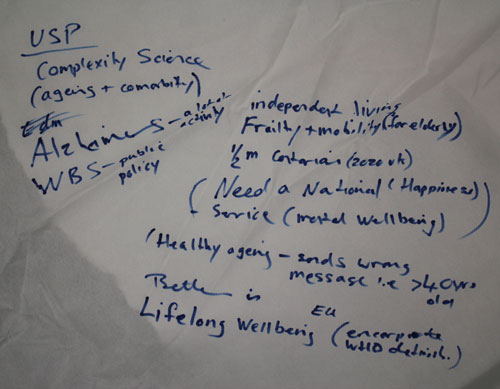 USP
Complexity Science
(ageing + comorbity)
Alzheimers - a lot of activity
WBS - public policy
independent living
Frailty + mobility (for elderly)
½m Centarians (2020 UK)
(Need a National (Happiness)
Service (mental wellbeing))
'Healthy ageing - sends wrong
message i.e >40yrs
old
Better is
EU
Lifelong Wellbeing (encorporate
WHO definit.)